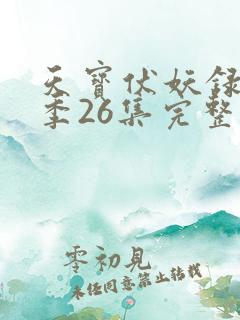 天寳伏妖録
季26集完整
零初見
未经同意禁止转载